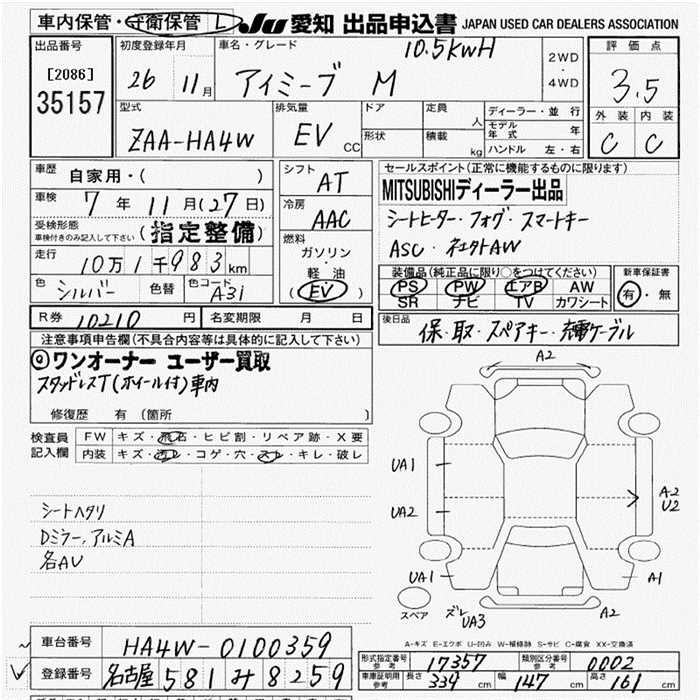 車内保管・守衛保管 L JU 愛知 出品申込書 JAPAN USED CAR DEALERS ASSOCIATION
出品番号 [2086] 35157
初度登録年月 26 11月
車名・グレード アイミーブ M 10.5kwH
2WD・4WD
評価点 3.5
外装 C 内装 C
型式 ZAA-HA4W
排気量 EV CC
ドア 形状
定員 人
積載 kg
ディーラー・並行
モデル年式 年
ハンドル 左・右
車歴 自家用・( )
車検 7年11月(27日)
受検形態 車検付きのみ記入して下さい (指定整備)
走行 10万1千983km
色 シルバー 色替 色コード A31
シフト AT
冷房 AAC
燃料 ガソリン・軽油 (EV)
セールスポイント(正常に機能するものに限ります)
MITSUBISHIディーラー出品
シートヒーター・フォグ・スマートキー
ASC・
装備品(純正品に限り○をつけてください)
PS PW エアB AW
SR ナビ TV カワシート
新車保証書 有・無
R券 10210円 名変期限 月 日
後日品 保・取・スペアキー・充電ケーブル
注意事項申告欄(不具合内容等は具体的に記入して下さい)
ワンオーナー ユーザー買取
スタッドレスT(ホイール付)車内
修復歴 有(箇所 )
検査員記入欄
FW キズ・飛石・ヒビ割・リペア跡・X要
内装 キズ・汚レ・コゲ・穴・スレ・キレ・破レ
シートヘタリ
Dミラー,アルミA
各AU
A2
UA1
UA2
A2
U2
UA1
A1
スペア
ズレ
UA3
A2
A-キズ E-エクボ U-凹み W-補修跡 S-サビ C-腐食 XX-交換済
車台番号 HA4W-0100359
登録番号 名古屋 581 み 8259
形式指定番号 参考 17357
類別区分番号 参考 0002
車庫証明用 参考 長さ 339cm 幅 147cm 高さ 161cm